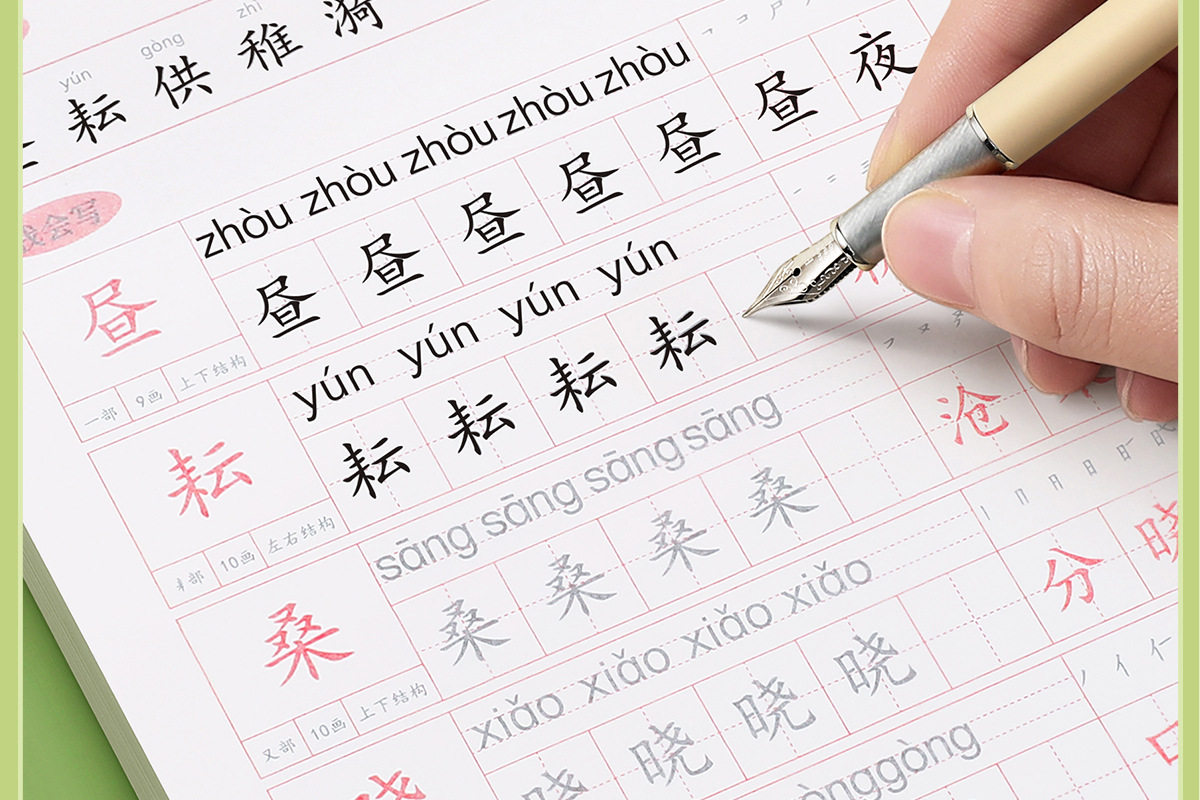 yún gòng zhì
耘 供 稚 漪
我会写
zhòu zhòu zhòu zhòu zhòu
昼 昼 昼 昼 昼 昼 昼 夜
一部 9画 上下结构
yún yún yún yún
耘 耘 耘 耘 耘
部 10画 左右结构
sāng sāng sāng sāng
桑 桑 桑 桑 桑 沧
又部 10画 上下结构
xiǎo xiǎo xiǎo xiǎo
晓 晓 晓 晓 分 晓
gòng